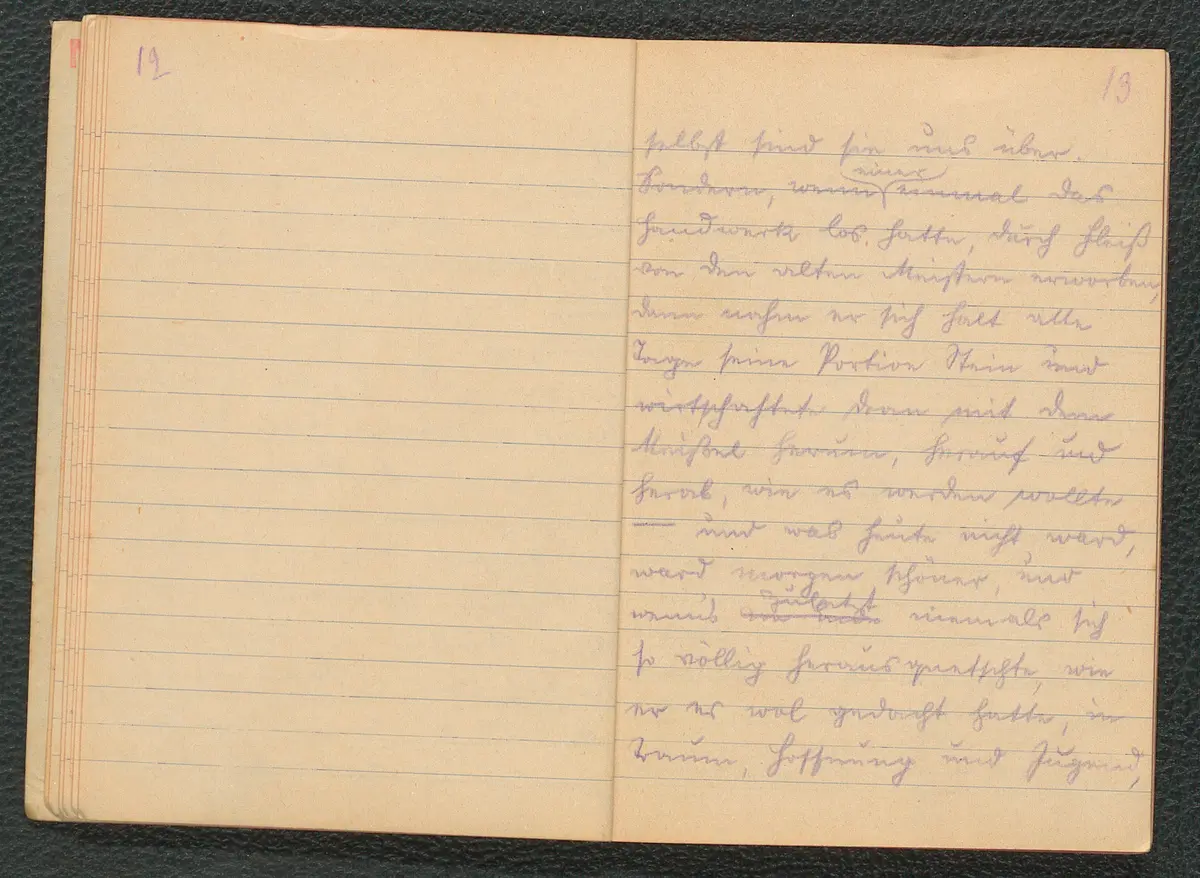 12
13
selbst sind sie uns über.
Sondern, wenn einer einmal das
Handwerk los hatte, durch Fleiß
von den alten Meistern erworben,
dann nahm er sich halt alle
Tage seine Portion Stein und
wirtschaftete dran mit dem
Meißel herum, herauf und
herab, wie es werden wollte
— und was heute nicht ward,
ward morgen schöner, und
wenns zuletzt niemals sich
so völlig herausquetschte, wie
er es wol gedacht hatte, in
Traum, Hoffnung und Jugend,